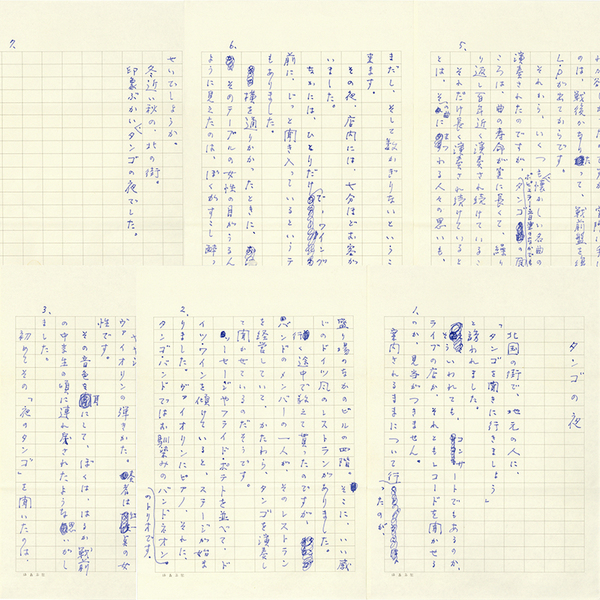 5.
のは、戦後かなりたって、戦前盤を
LPが出てからです。
それから、いくつも懐かしい名曲の
演奏されたのですが、タンゴの
ころは、曲の寿命が実に長くて、繰り
返し百年近く演奏され続けているこ
それだけ長く演奏され続けていると
とは、それにつれる人々の思いも、
6.
まだし、そして かぎりないというこ
来ます。
その夜、店内には、七分ほどお客が
いました。
なかには、ひとりだけで、ワイング
前に、じっと聞き入っているというテ
もありました。
横を通りかかったときに、
そのテーブルの女性の目がうるん
ように見えたのは、ぼくがすこし酔っ
7.
せいでしょうか。
冬近い秋の、北の街。
印象ぶかいタンゴの夜でした。
1.
タンゴの夜
北国の街で、地元の人に、
「タンゴを聞きに行きましょう」
と誘われました。
そういわれても、コンサートでもあるのか、
ライブの店か、それともレコードを聞かせる
のか、見当がつきません。
案内されるままについて行ったのが、
2.
盛り場のなかのビルの四階。そこに、いい感
じのドイツ風のレストランがありました。
行く途中で教えて貰ったのですが、
バンドのメンバーの一人が、そのレストラン
を経営していて、かたわら、タンゴを演奏し
て聞かせているのだそうです。
ソーセージやフライドポテトを並べて、ド
イツ・ワインを傾けていると、ステージが始ま
りました。ヴァイオリンにピアノ、それに、
タンゴバンドではお馴染みのバンドネオン。
のトリオです。
3.
ヴァイオリンの弾きかた。奏者は の女
性です。
その音色を耳にして、ぼくは、はるか戦前
の中学生の頃に連れ戻されたような思いがし
ました。
初めてその「夜のタンゴ」を聞いたのは、